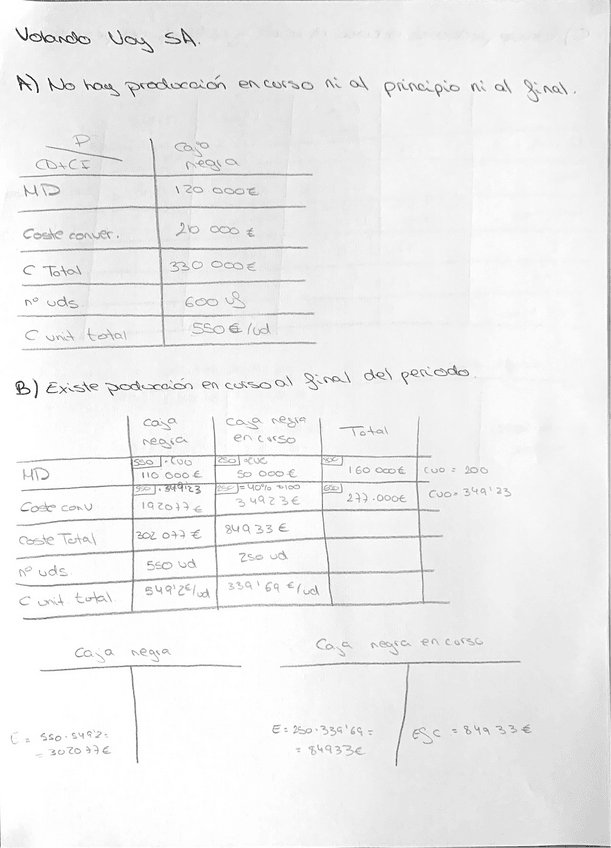 Volando Voy SA.
A) No hay producción en curso ni al principio ni al final.
P caja
CD+CI negra
MD 120 000€
Coste conver. 210 000 €
C Total 330 000€
nº uds 600 u
C unit total 550 €/ud
B) Existe poducción en curso al final del periodo.
caja negra caja negra en curso Total
550 · CUO 250 · CUO 800
MD 110 000 € 50 000 € 160 000€ CUO = 200
550 · 349'23 = 40% 100
Coste conv 192077 € 34923€ 277.000€ CUO= 349'23
Coste Total 302 077 € 84933 €
nº uds 550 ud 250 ud
C unit total 549'2€/ud 339'69 €/ud
Caja negra Caja negra en curso
= 550·549'2= E=250·339'69=
= 302077€ = 84933€
= 84933€